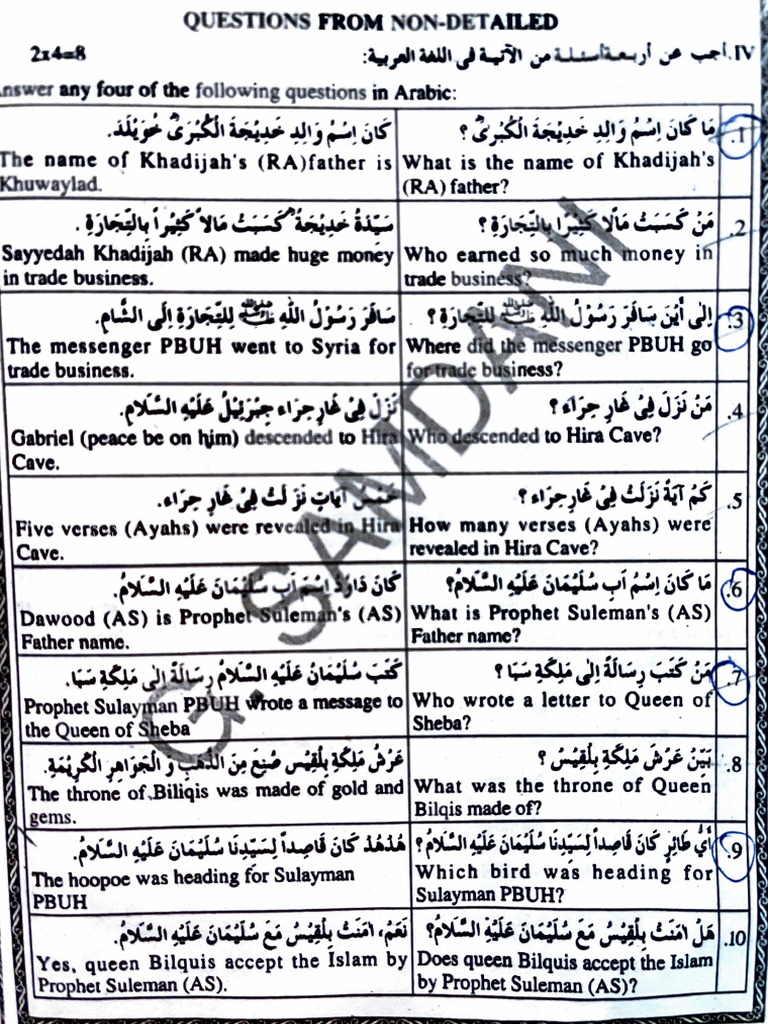 QUESTIONS FROM NON-DETAILED
IV. أجب عن أربعة أسئلة من الآتية في اللغة العربية: 2x4=8
Answer any four of the following questions in Arabic:
1. مَا كَانَ اِسْمُ وَالِدِ خَدِيْجَةَ الْكُبْرَىؓ ؟
What is the name of Khadijah's
(RA) father?
كَانَ اِسْمُ وَالِدِ خَدِيْجَةَ الْكُبْرَىؓ خُوَيْلَدَ.
The name of Khadijah's (RA)father is
Khuwaylad.
2. مَنْ كَسَبَتْ مَالًا كَثِيْرًا بِالتِّجَارَةِ ؟
Who earned so much money in
trade business?
سَيِّدَةُ خَدِيْجَةُؓ كَسَبَتْ مَالاً كَثِيْراً بِالتِّجَارَةِ .
Sayyedah Khadijah (RA) made huge money
in trade business.
3. اِلٰى أَيْنَ سَافَرَ رَسُوْلُ اللّٰهِ ﷺ لِلتِّجَارَةِ ؟
Where did the messenger PBUH go
for trade business?
سَافَرَ رَسُوْلُ اللّٰهِ ﷺ لِلتِّجَارَةِ اِلَى الشَّامِ.
The messenger PBUH went to Syria for
trade business.
4. مَنْ نَزَلَ فِيْ غَارِ حِرَاء ؟
Who descended to Hira Cave?
نَزَلَ فِيْ غَارِ حِرَاء جِبْرَئِيْلُ عَلَيْهِ السَّلَام.
Gabriel (peace be on him) descended to Hira
Cave.
5. كَمْ آيَةً نَزَلَتْ فِيْ غَارِ حِرَاء ؟
How many verses (Ayahs) were
revealed in Hira Cave?
خَمْسُ آيَاتٍ نَزَلَتْ فِيْ غَارِ حِرَاء.
Five verses (Ayahs) were revealed in Hira
Cave.
6. مَا كَانَ اِسْمُ اَبِ سُلَيْمَانَ عَلَيْهِ السَّلَامُ؟
What is Prophet Suleman's (AS)
Father name?
كَانَ دَاوٗدُ اِسْمَ اَبِ سُلَيْمَانَ عَلَيْهِ السَّلَامُ.
Dawood (AS) is Prophet Suleman's (AS)
Father name.
7. مَنْ كَتَبَ رِسَالَةً اِلٰى مَلِكَةِ سَبَا ؟
Who wrote a letter to Queen of
Sheba?
كَتَبَ سُلَيْمَانُ عَلَيْهِ السَّلَامُ رِسَالَةً اِلٰى مَلِكَةِ سَبَا.
Prophet Sulayman PBUH wrote a message to
the Queen of Sheba
8. بَيِّنْ عَرْشَ مَلِكَةِ بِلْقِيْسُ ؟
What was the throne of Queen
Bilqis made of?
عَرْشُ مَلِكَةِ بِلْقِيْس صُنِعَ مِنَ الذَّهَبِ وَ الْجَوَاهِرِ الْكَرِيْمَةِ.
The throne of Biliqis was made of gold and
gems.
9. أَيُّ طَائِرٍ كَانَ قَاصِداً لِسَيِّدِنَا سُلَيْمَانَ عَلَيْهِ السَّلَامُ؟
Which bird was heading for
Sulayman PBUH?
هُدْهُدْ كَانَ قَاصِداً لِسَيِّدِنَا سُلَيْمَانَ عَلَيْهِ السَّلَامُ.
The hoopoe was heading for Sulayman
PBUH
10. هَلْ اٰمَنَتْ بِلْقِيْسُ مَعَ سُلَيْمَانَ عَلَيْهِ السَّلَامُ؟
Does queen Bilquis accept the Islam
by Prophet Suleman (AS)?
نَعَمْ، اٰمَنَتْ بِلْقِيْسُ مَعَ سُلَيْمَانَ عَلَيْهِ السَّلَامُ.
Yes, queen Bilquis accept the Islam by
Prophet Suleman (AS).
G. SAMDANI